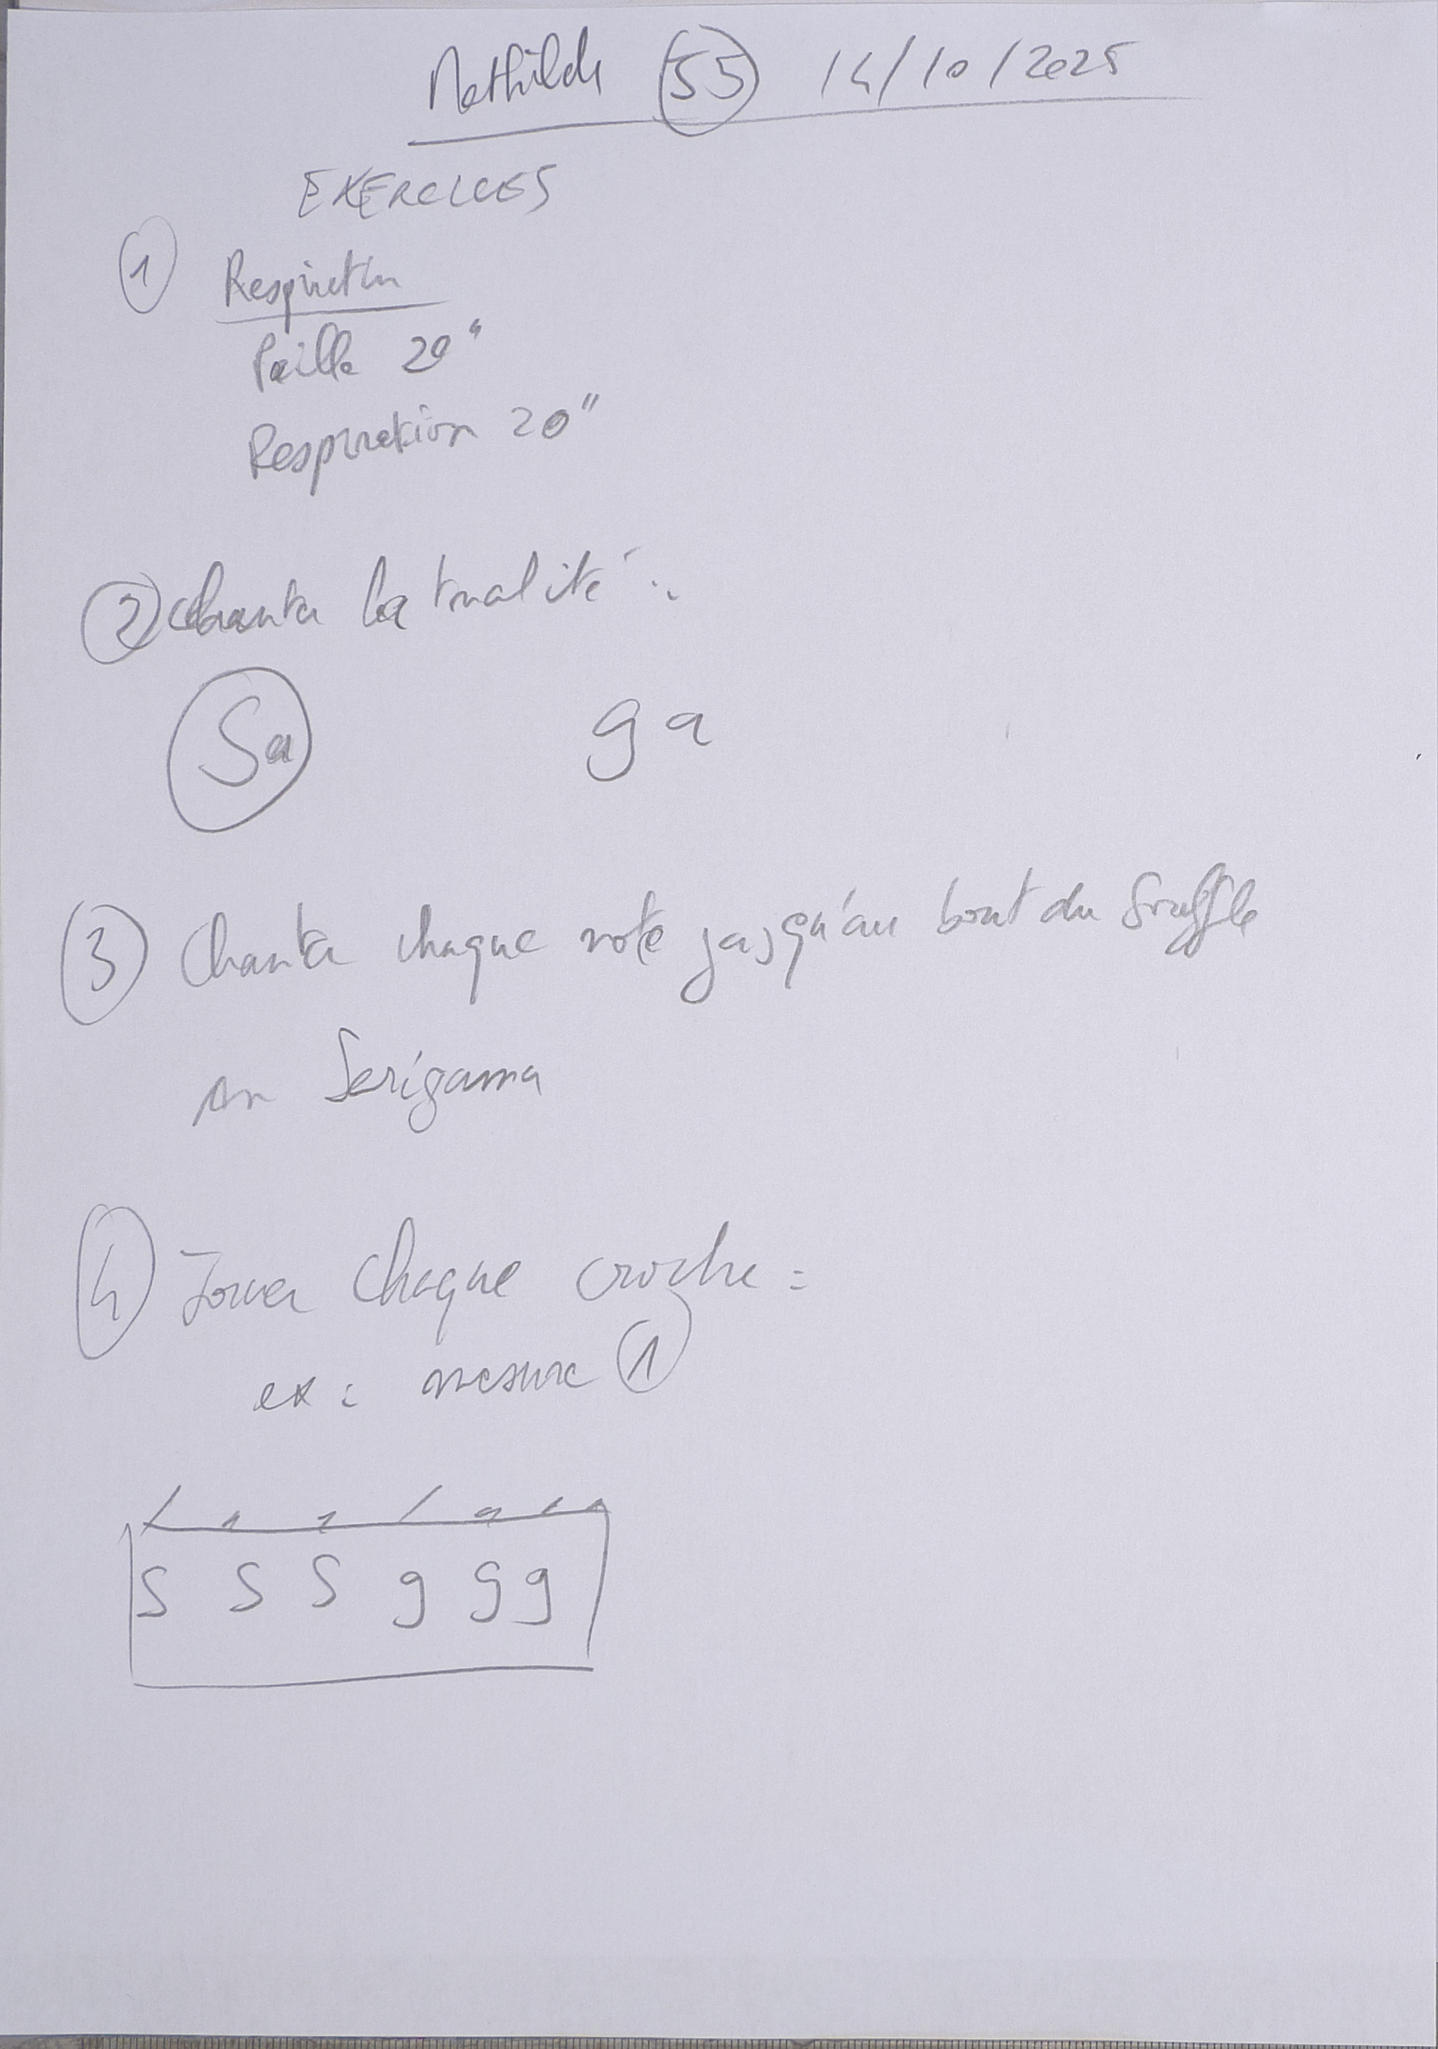 Mathilde 55 14/10/2025
EXERCICES
1 Respiration
Paille 20"
Respiration 20"
2 chanter la tonalité :
Sa ga
3 Chanter chaque note jusqu'au bout du souffle
en Serigama
4 Jouer chaque croche :
ex : mesure 1
S S S g g g